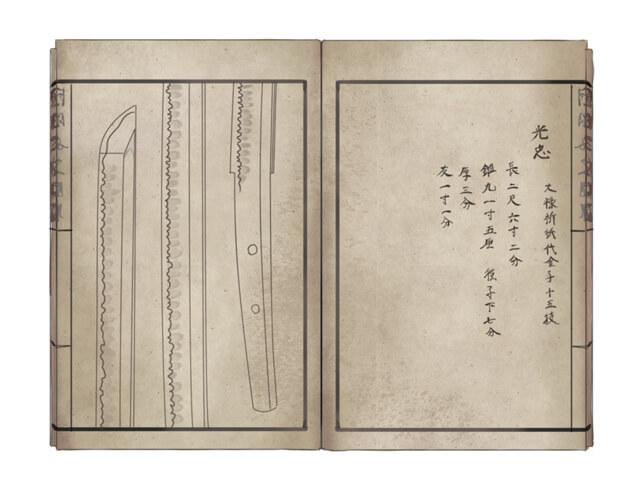 光忠
折紙代金子十三枚
長二尺六寸二分
一寸五厘 子下七分
厚三分
灰一寸一分